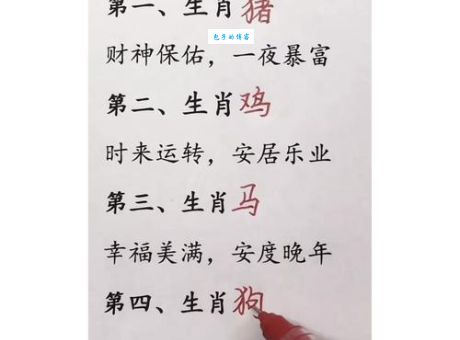 第一、生肖猪
包子的博客
财神保佑，一夜暴富
第二、生肖鸡
时来运转，安居乐业
第三、生肖马
幸福美满，安度晚年
第四、生肖狗